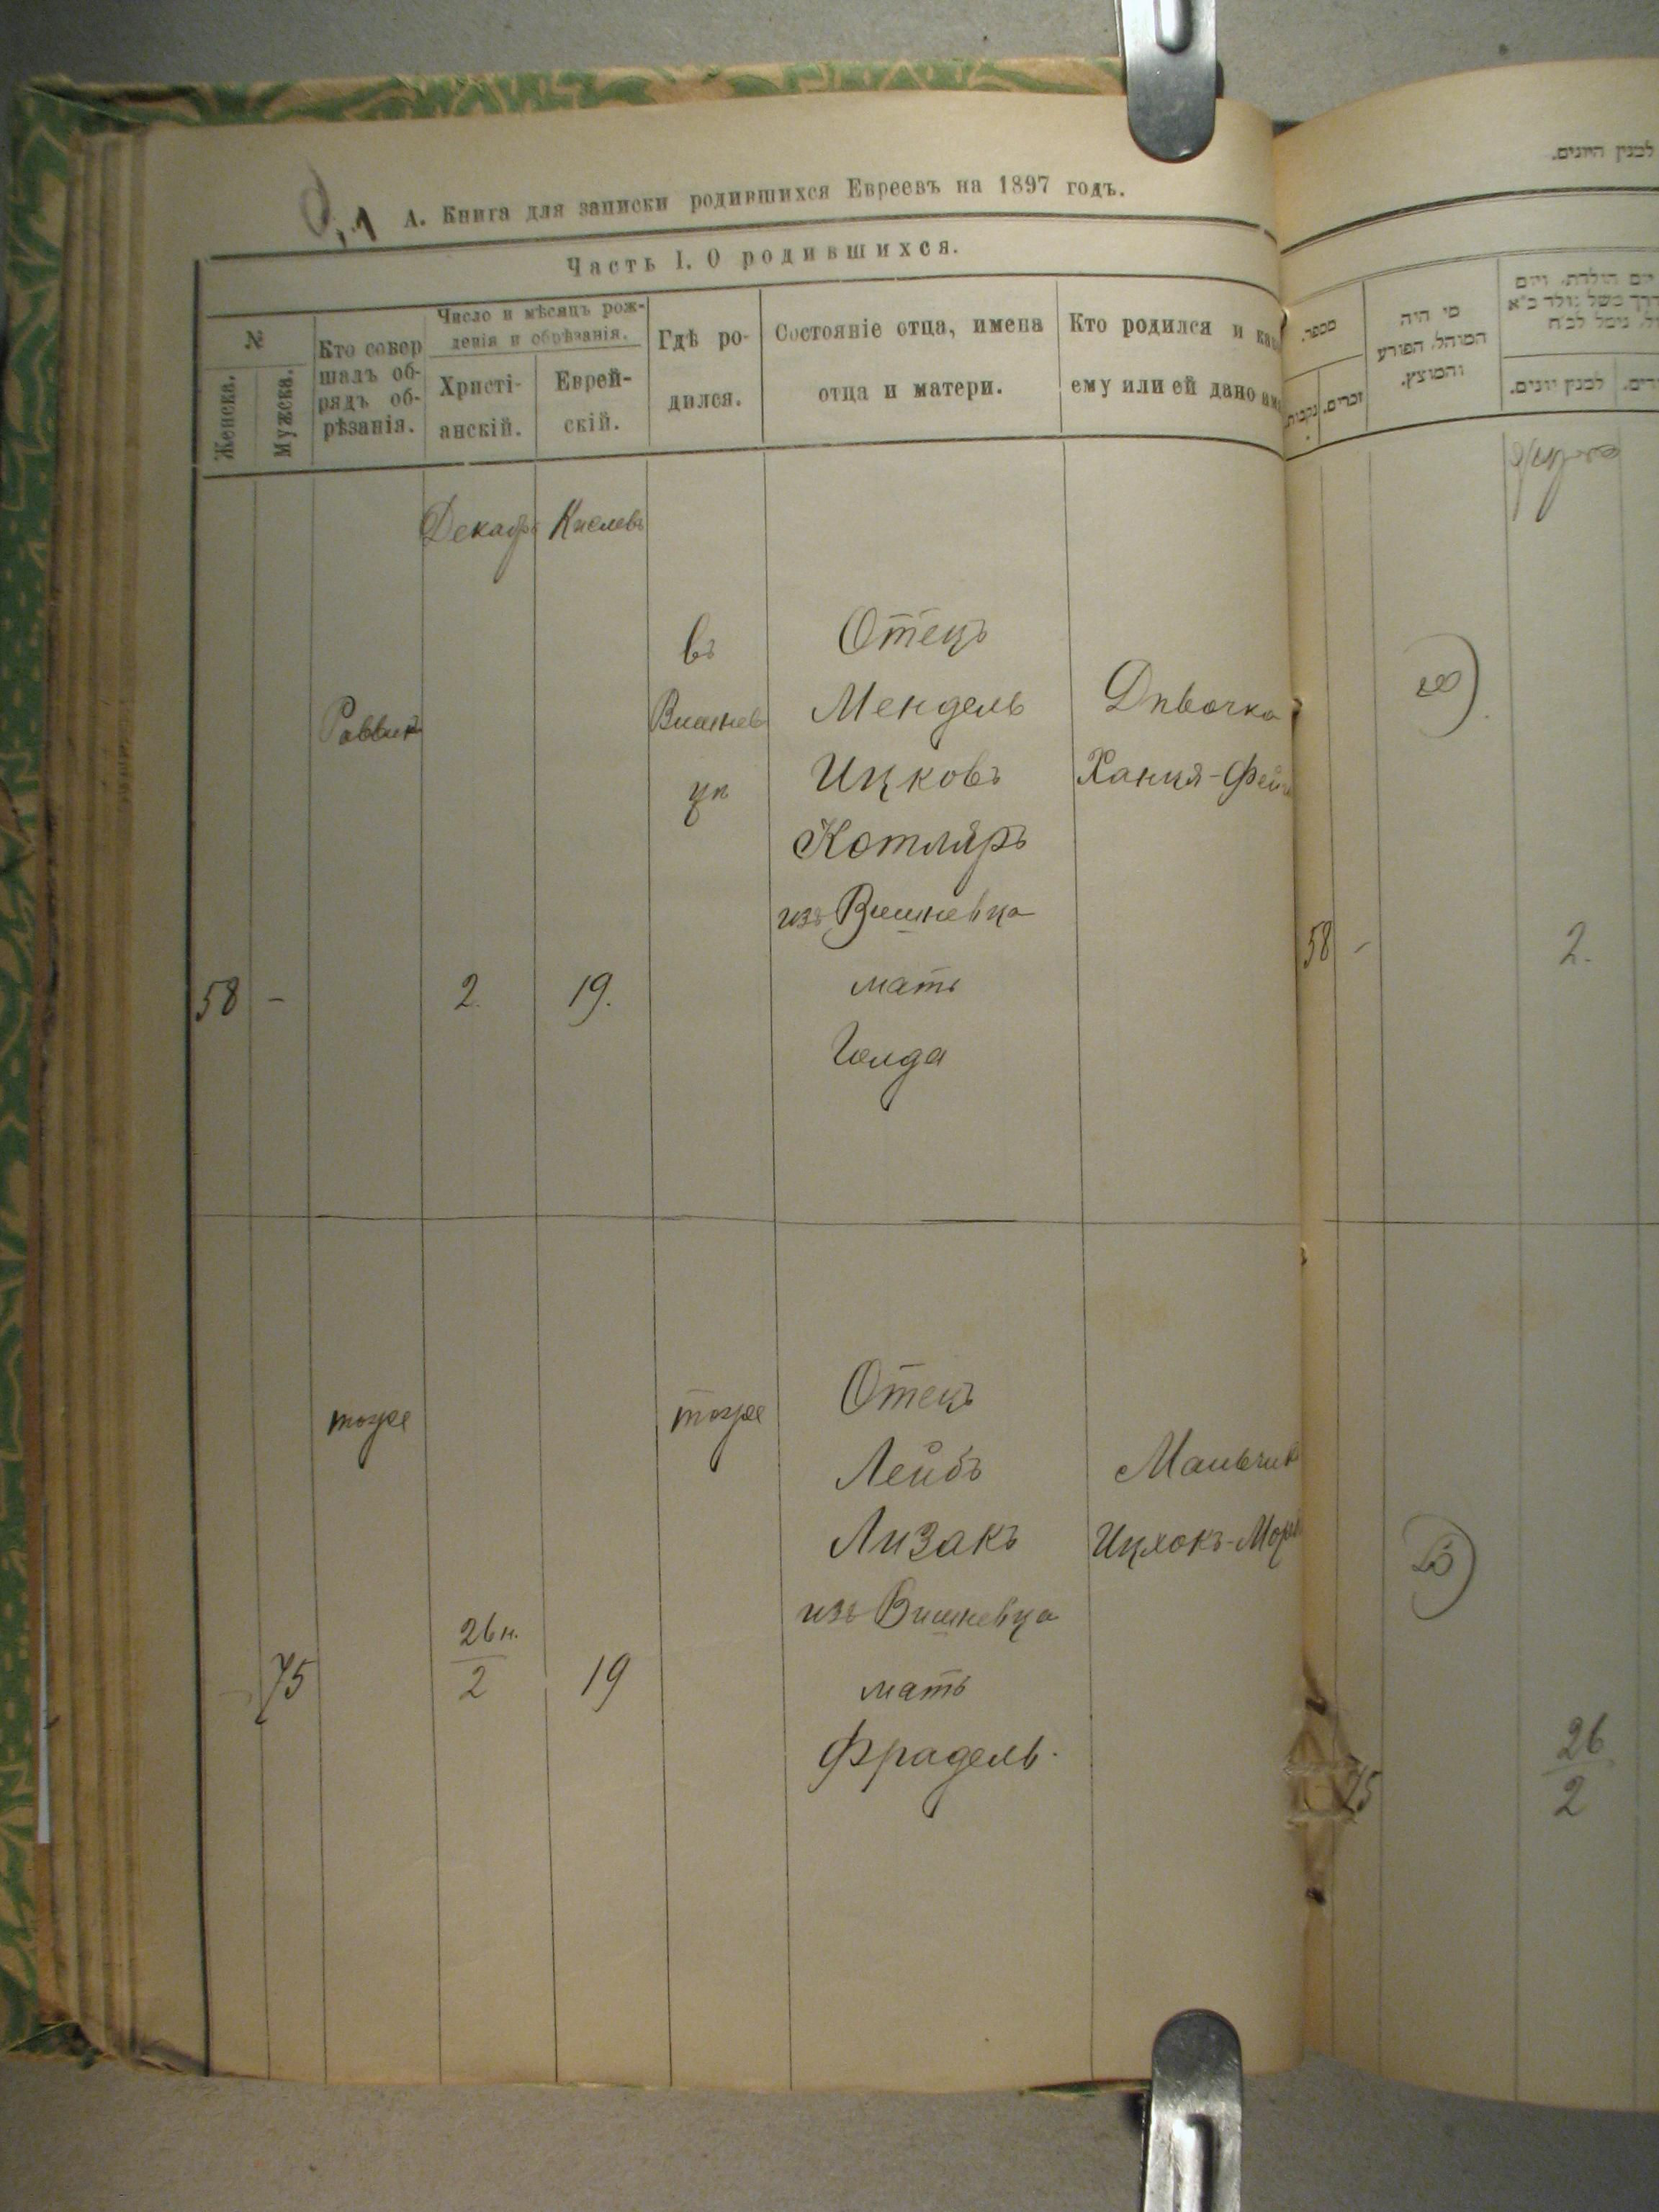 А. Книга для записки родившихся Евреевъ на 1897 годъ.
Часть I. О родившихся.
№
Женска.
Мужска.
Кто совер
шалъ об-
рядъ об-
рѣзанія.
Число и мѣсяцъ рож-
денія и обрѣзанія.
Христі-
анскій.
Еврей-
скій.
Гдѣ ро-
дился.
Состояніе отца, имена
отца и матери.
Кто родился и
ему или ей дано
Декабр Кислевъ
58 -
Раввинъ
2.
19.
въ
Вишнев
цѣ
Отецъ
Мендель
Ицковъ
Котляръ
изъ Вишневца
мать
Голда
Дѣвочка
Ханця-
- 75
тоже
26 н.
2
19
тоже
Отецъ
Лейбъ
Лизакъ
изъ Вишневца
мать
Фрадель.
Мальчикъ
Ицхокъ-
לבנין היונים.
מספר.
נקבות.
זכרים.
מי היה
המוהל, הפורע
והמוצץ.
יום הולדת, ויום
לבנין יונים.
58 -
2.
75
26
2